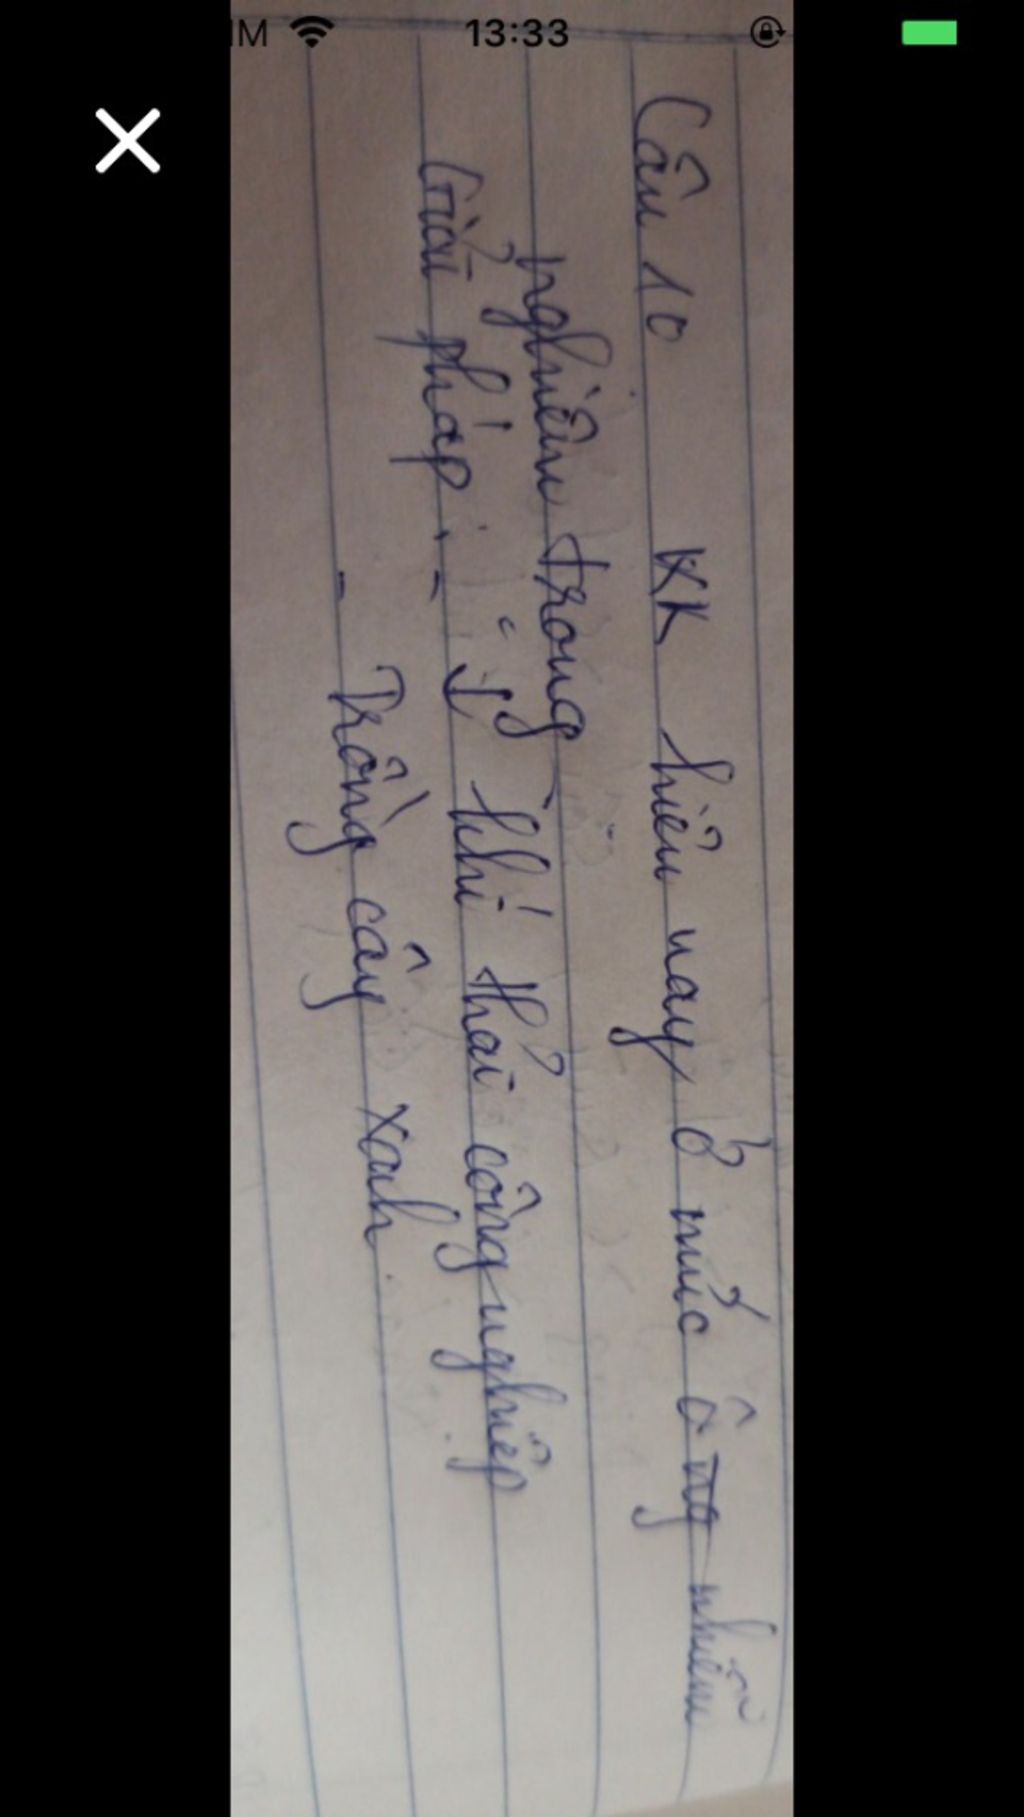 IM 13:33
Câu 10 KK hiện nay ở mức ô nhiễm
nghiêm trọng
Giải pháp : - ↓ khí thải công nghiệp
- Trồng cây xanh